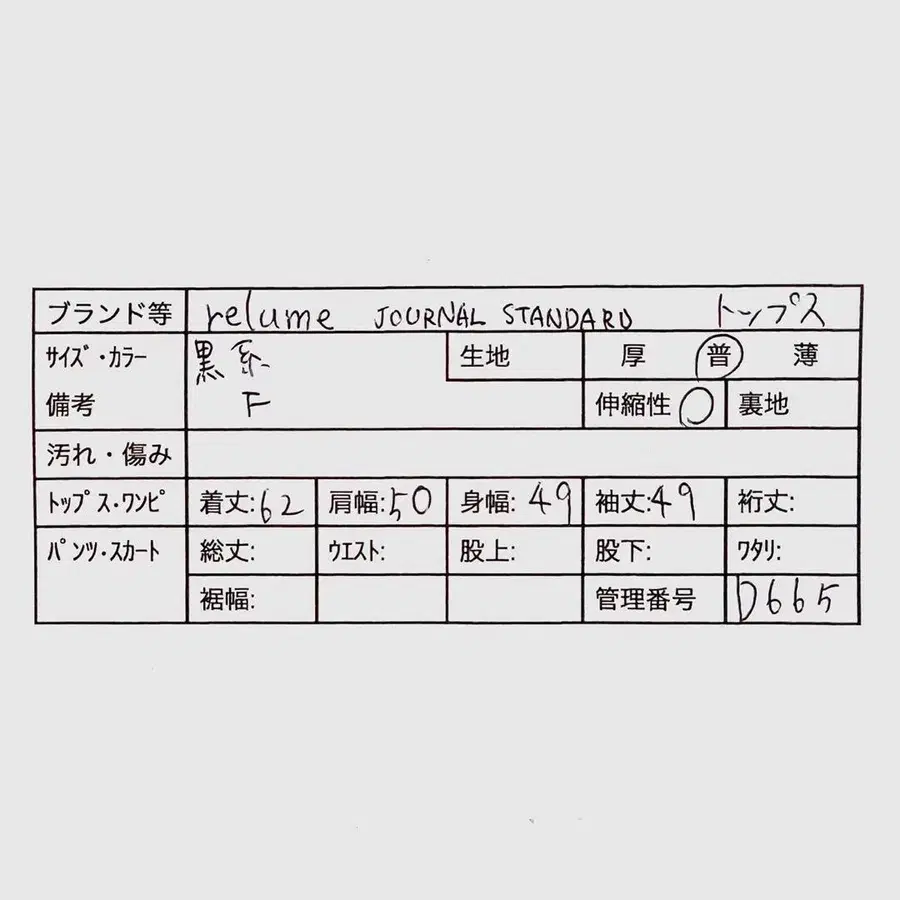 ブランド等 relume JOURNAL STANDARD トップス
サイズ・カラー 黒系 生地 厚 普 薄
備考 F 伸縮性 ○ 裏地
汚れ・傷み
トップス・ワンピ 着丈:62 肩幅:50 身幅:49 袖丈:49 裄丈:
パンツ・スカート 総丈: ウエスト: 股上: 股下: ワタリ:
裾幅: 管理番号 D665